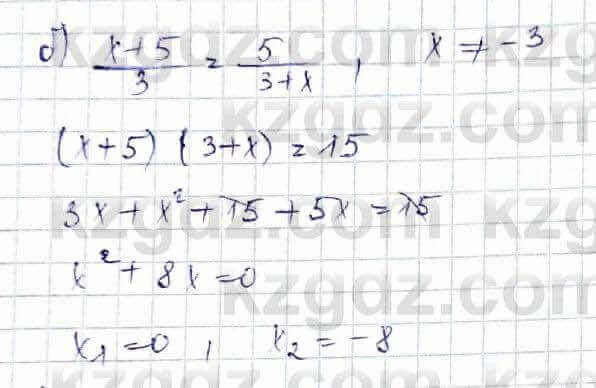 б) x+5/3 = 5/3+x , x ≠ -3
(x+5) (3+x) = 15
3x + x² + 15 + 5x = 15
x² + 8x = 0
x₁ = 0 , x₂ = -8
kzgdz.com
kzgdz.com
kzgdz.com
kzgdz.com